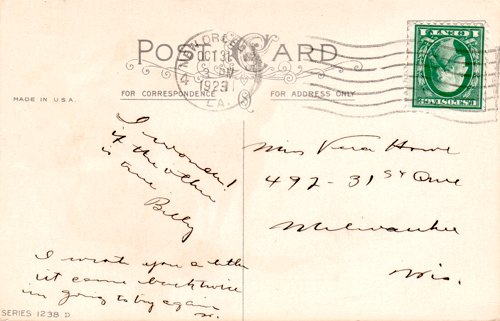 POST CARD
NEW ORLEANS
OCT 31
1923
LA.
1 CENT 1
U.S. POSTAGE
MADE IN U.S.A.
FOR CORRESPONDENCE
FOR ADDRESS ONLY
I wonder!
if the other
is one
Billy
I wrote you a letter
it came back twice
im going to try again
Miss Vera Howe
492 - 31st Ave
Milwaukee
Wis.
SERIES 1238 D